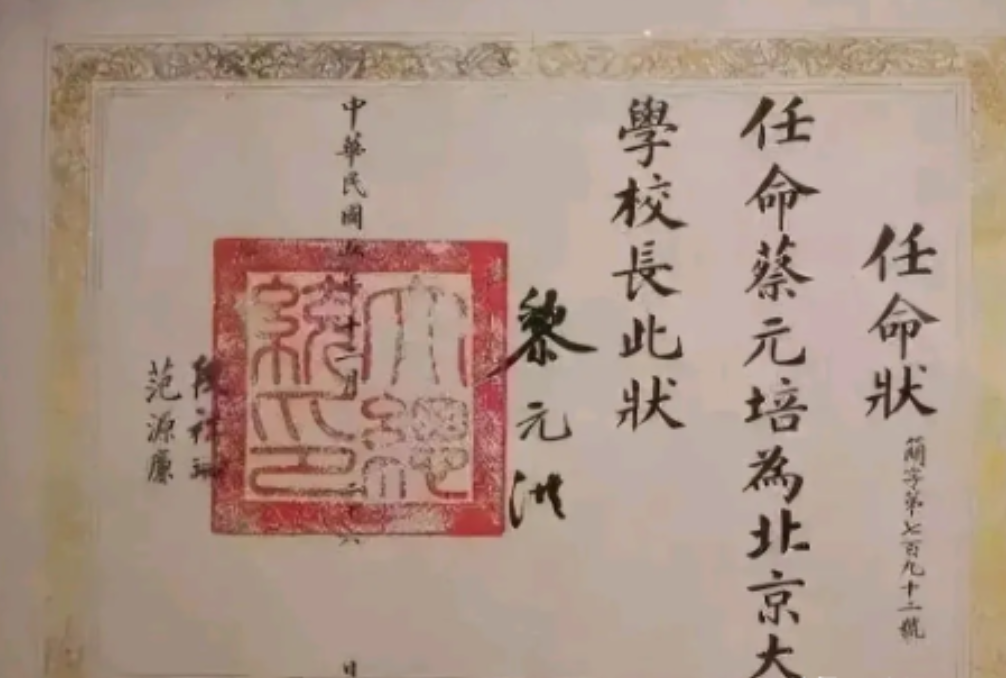 任命狀
簡字第七百九十二號
任命蔡元培為北京大
學校長此狀
黎元洪
大總
統印
中華民國五年十二月二十六
日
段祺瑞
范源廉